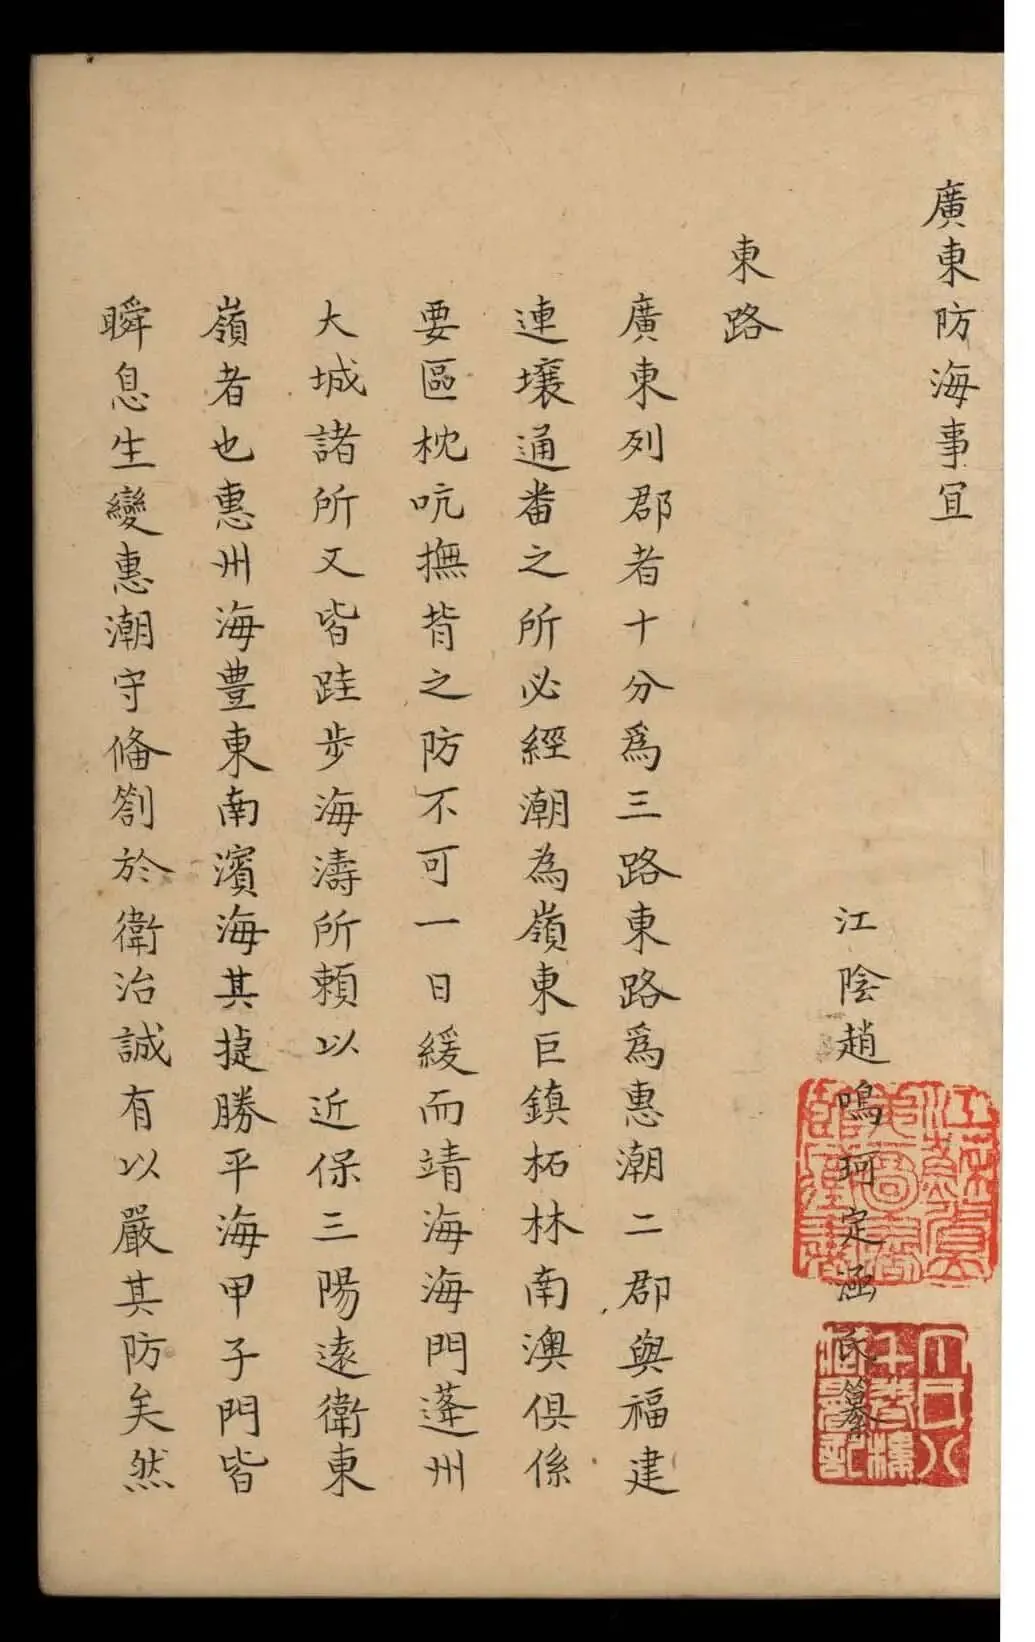 廣東防海事宜
江陰趙鳴珂定涵氏纂
東路
廣東列郡者十分為三路東路為惠潮二郡與福建
連壤通番之所必經潮為嶺東巨鎮柘林南澳俱係
要區枕吭撫背之防不可一日緩而靖海海門蓬州
大城諸所又皆跬步海濤所賴以近保三陽遠衛東
嶺者也惠州海豊東南濱海其捷勝平海甲子門皆
瞬息生變惠潮守俻劄於衛治誠有以嚴其防矣然